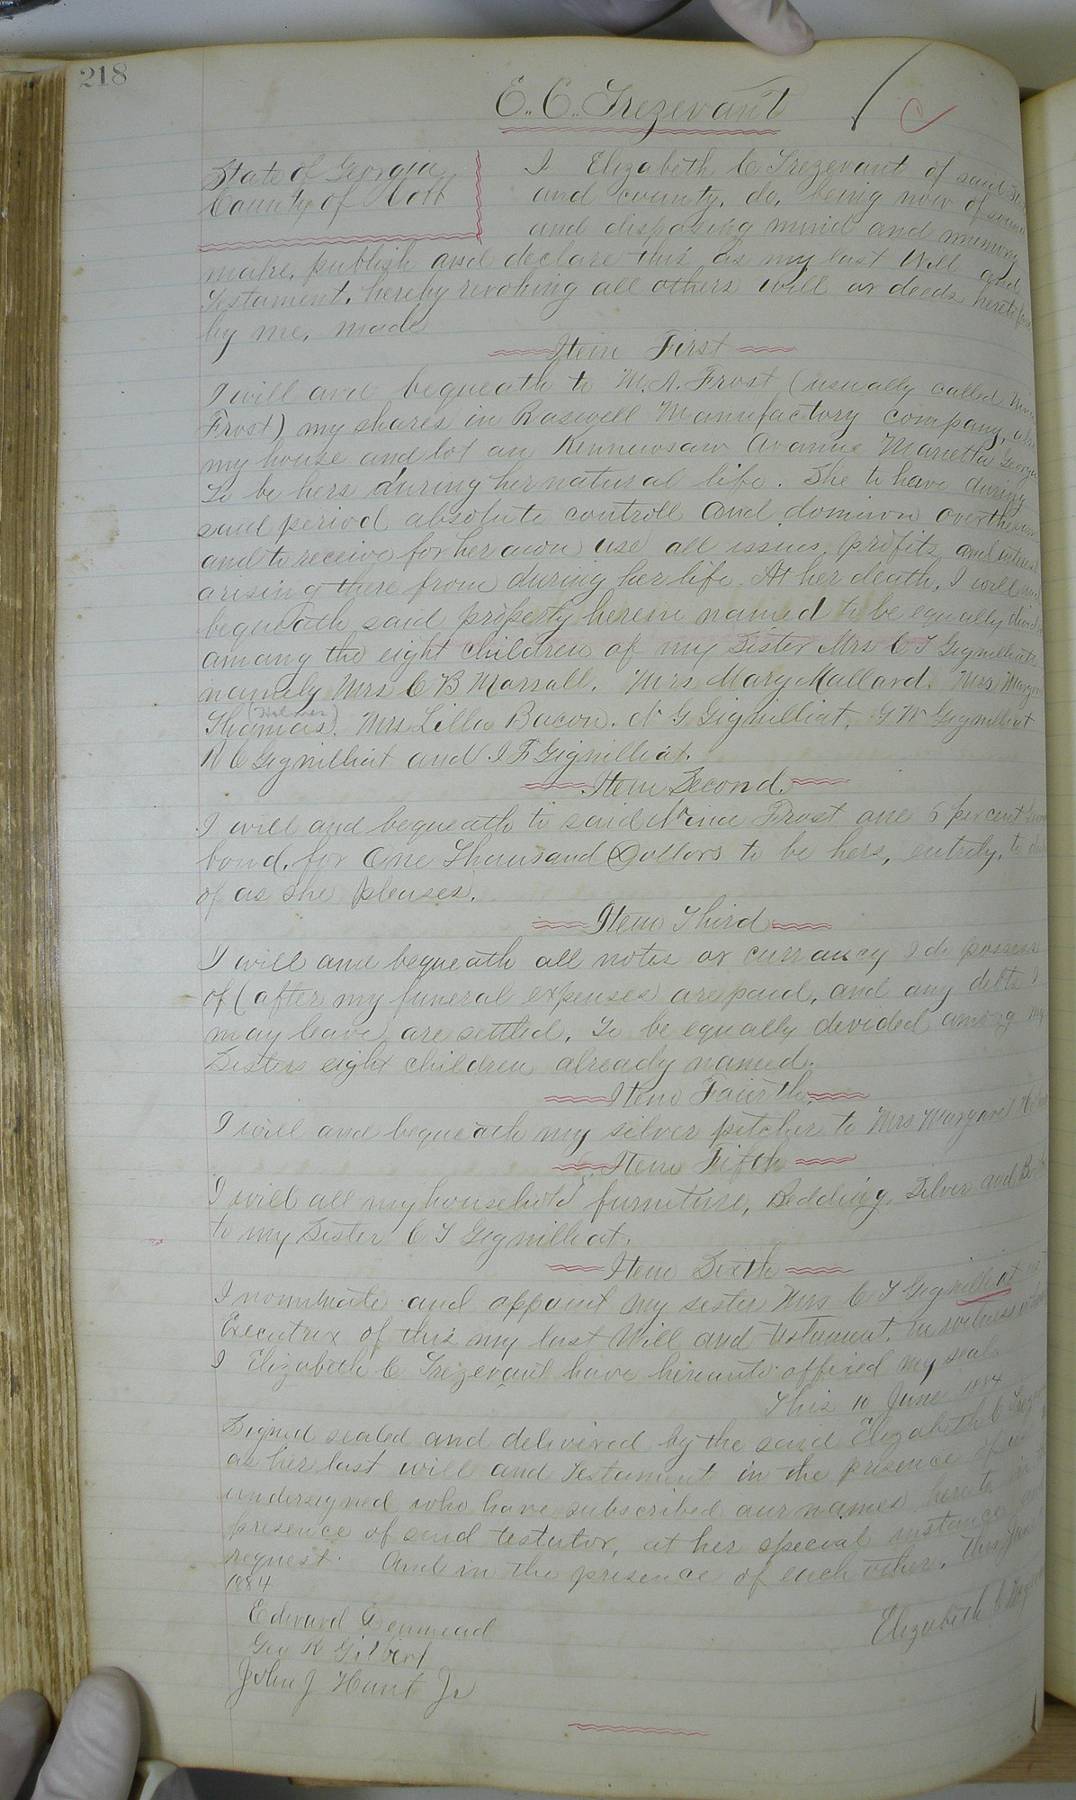 218
E. C. Trezevant
State of Georgia
County of Cobb
I Elizabeth C Trezevant of said
and county, do, being now of sound
and disposing mind and memory
make, publish and declare this as my last Will and
Testament, hereby revoking all others will or deeds heretofore
by me, made
Item First
I will and bequeath to M. A. Frost (usually called Nina
Frost) my shares in Roswell Manufactory company, also
my house and lot on Kennewsaw Avanue Marietta Georgia
To be hers during her natural life. She to have during
said period absolute controll and dominion over the same
and to receive for her own use all issues, profits and interest
arising there from during her life. At her death, I will and
bequeath said property herein named to be equally divided
among the eight children of my Sister Mrs C T Gignilliat
namely Mrs C B Marsall. Mrs Mary Mallard. Mrs Margaret
(Holmes)
Thomas. Mrs Lillie Bacon. N G Gignilliat. G W Gignilliat
H C Gignilliat and I F Gignilliat.
Item Second.
I will and bequeath to said Nina Frost one 6 per cent
bond, for One Thousand Dollars to be hers, entirely, to
of as she pleases.
Item Third
I will and bequeath all notes or currancy I do possess
of (after my funeral expenses are paid, and any debts I
may leave are settled. To be equally devided among my
Sisters eight children already named.
Item Fourth
I will and bequeath my silver pitcher to Mrs Margaret
Item Fifth
I will all my household furniture, Bedding, Silver and
to my Sister C T Gignilliat.
Item Sixth
I nominate and appoint my sister Mrs C T Gignilliat
Executrix of this my last Will and Testament. In witness
I Elizabeth C Trezevant have hereunto affixed my seal
This 10 June 1884
Signed sealed and delivered by the said Elizabeth C
as her last will and Testament in the presence of
undersigned who have subscribed our names hereto in
presence of said testator, at her special instance and
request. And in the presence of each other. This
1884
Elizabeth C
Edward Denmead
Geo R Gilbert
John J Hunt Jr